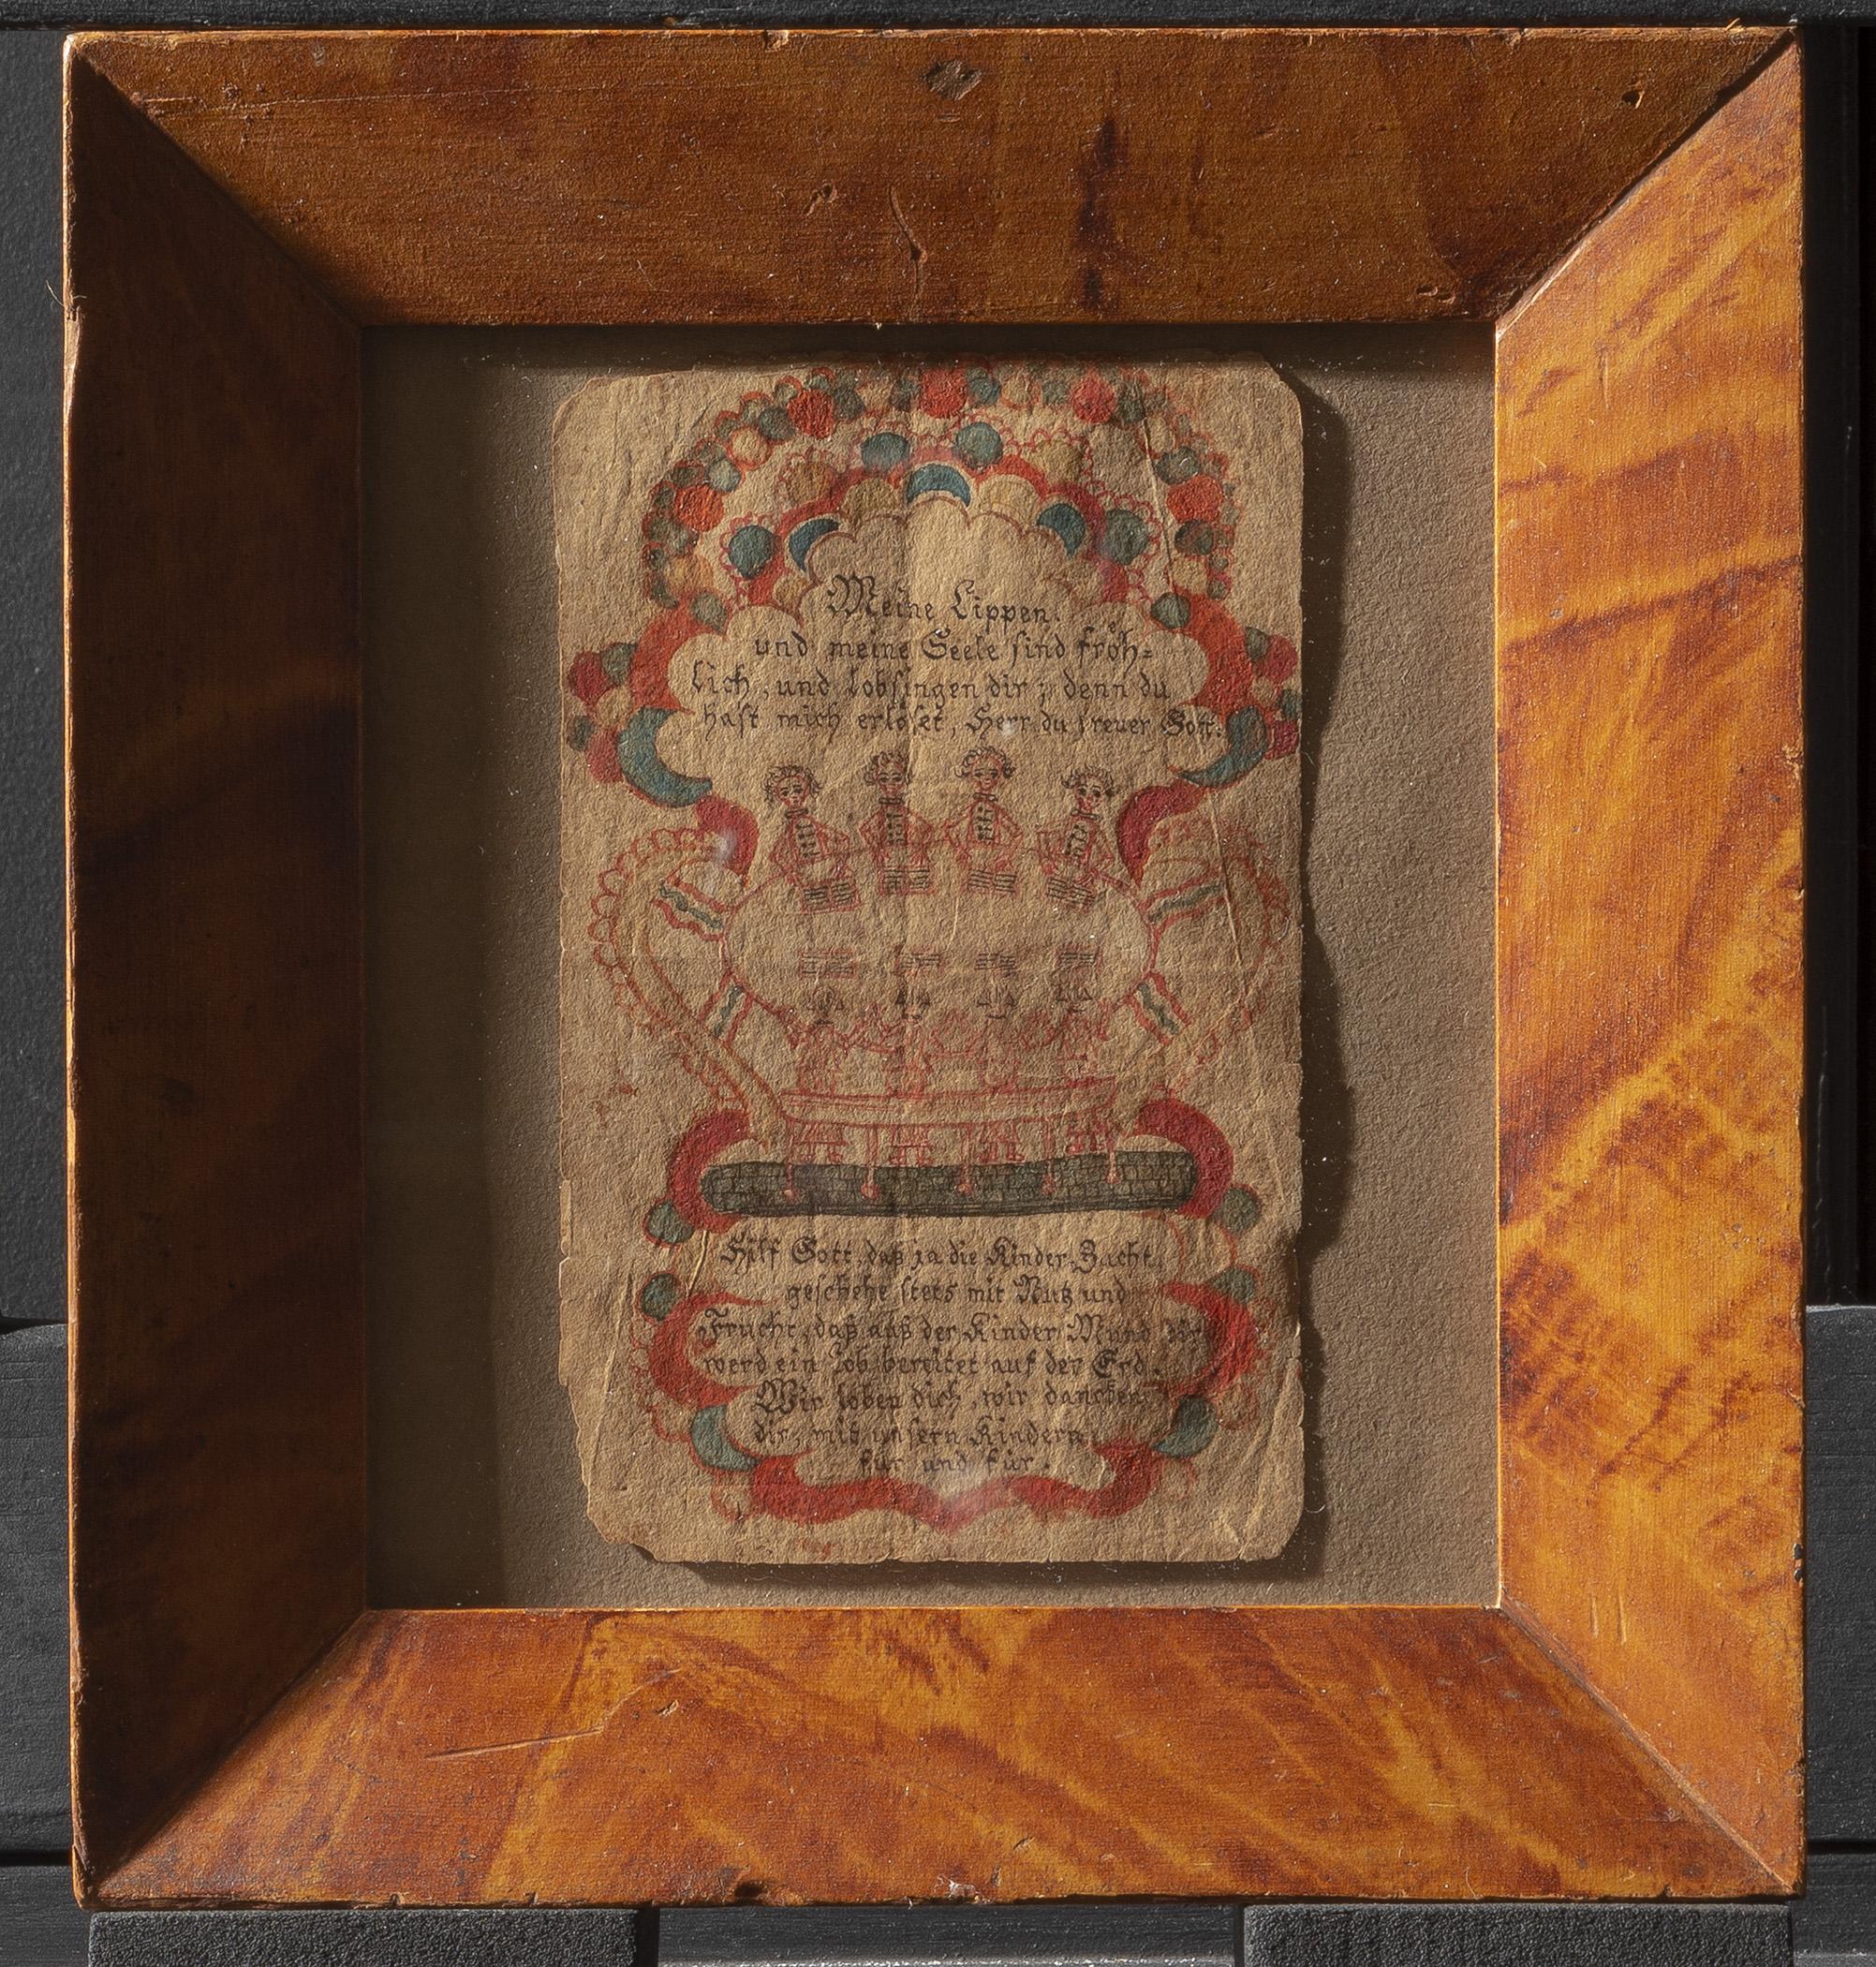 Meine Lippen.
und meine Seele sind fröh=
lich, und lobsingen dir; denn du
hast mich erlöset, Herr du treuer Gott.
Hilf Gott, daß ja die Kinder=Zucht
geschehe stets mit Nutz und
Frucht, daß aus der Kinder Mund dir
werd ein Lob bereitet auf der Erd.
Wir loben dich, wir dancken
dir, mit unsern Kindern
für und für.